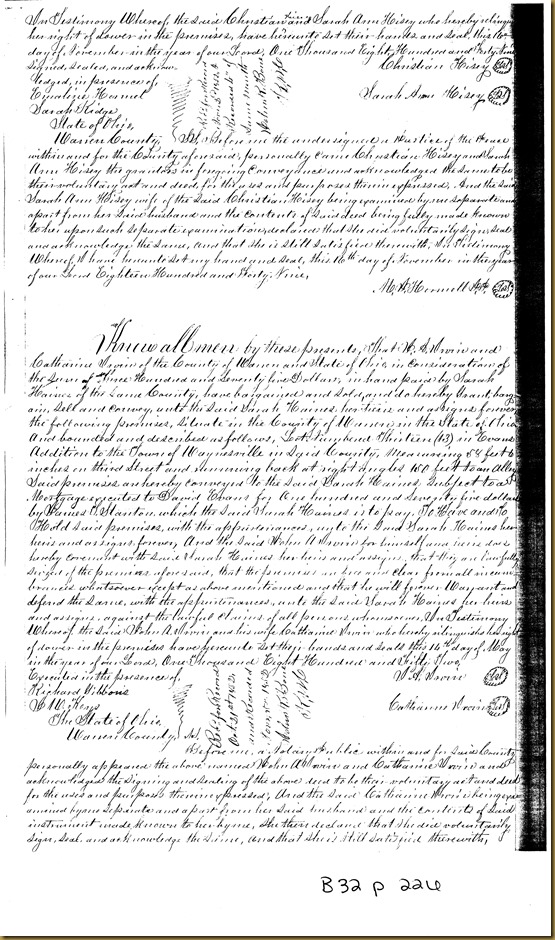 In Testimony Whereof, the said Christian and Sarah Ann Hisey who hereby relinquish
her right of dower in the premises, have hereunto set their hands and seals this 16th
day of November in the year of our Lord, One Thousand Eight Hundred and Forty Nine
Signed, sealed, and acknow-
ledged, in presence of,
Christian Hisey Seal
Emaline Hormel
Sarah Ann Hisey Seal
Sarah Kidge
State of Ohio,
Warren County, Ss, Before me the undersigned a Justice of the Peace
within and for the County aforesaid, personally came Christian Hisey and Sarah
Ann Hisey the grantors in foregoing conveyance and acknowledged the same to be
their voluntary act and deed for the uses and purposes therein expressed. And the said
Sarah Ann Hisey wife of the said Christian Hisey being examined by me separate and
apart from her said husband and the contents of said deed being fully made known
to her upon such separate examination, declared that she did voluntarily sign, seal
and acknowledge the same, and that she is still satisfied therewith, In Testimony
Whereof, I have hereunto set my hand and seal, this 16th day of November in the year
of our Lord Eighteen Hundred and Forty Nine,
Seal
Know all men by these presents, that W. A. Irwin and
Catharine Irwin of the County of Warren and State of Ohio, in consideration of
the Sum of Three Hundred and Seventy five Dollars, in hand paid by Sarah
Haines of the same County, have bargained and sold, and do hereby Grant, barg-
ain, Sell and Convey, unto the said Sarah Haines, her heirs and assigns forever
the following premises, Situate in the County of Warren, in the State of Ohio
And bounded and described as follows, Lot Numbered Thirteen (13) in Evans
Addition to the Town of Waynesville in said County, Measuring 54 feet 6
inches on third Street and running back at right angles 150 feet to an Alley
Said premises are hereby conveyed to the said Sarah Haines Subject to a
Mortgage executed to David Evans for One hundred and Seventy five dollars
by James I. Stanton which the said Sarah Haines is to pay, To Have and to
Hold said premises, with the appurtenances, unto the said Sarah Haines her
heirs and assigns, forever, And the said John A Irwin for himself and heirs does
hereby covenant with said Sarah Haines her heirs and assigns, that they are lawfully
Seized of the premises aforesaid, that the premises are free and clear from all incum-
brances whatsoever except as above mentioned and that he will forever Warrant and
defend the same, with the appurtenances, unto the said Sarah Haines, her heirs
and assigns, against the lawful claims of all persons whomsoever, In Testimony
Whereof, the said John A Irwin and his wife, Catharine Irwin who hereby relinquishes her right
of dower in the premises have hereunto set their hands and seals this 15th day of May
in the year of our Lord, One Thousand Eight Hundred and Fifty Two,
Executed in the presence of,
J. A. Irwin Seal
Richard Gibbons
Catharine Irwin Seal
W. W. Keys
The State of Ohio
Warren County, Ss
Before me, a Notary Public within and for said County
personally appeared the above named John A Irwin and Catharine Irwin and
acknowledged the signing and sealing of the above deed to be their voluntary act and deed
for the uses and purposes therein expressed, And the said Catharine Irwin being ex-
amined by me separate and apart from her said husband and the contents of said
instrument made known to her by me, she then declared that she did voluntarily
Sign, Seal and acknowledge the same, and that she is still satisfied therewith,
B32 p 226